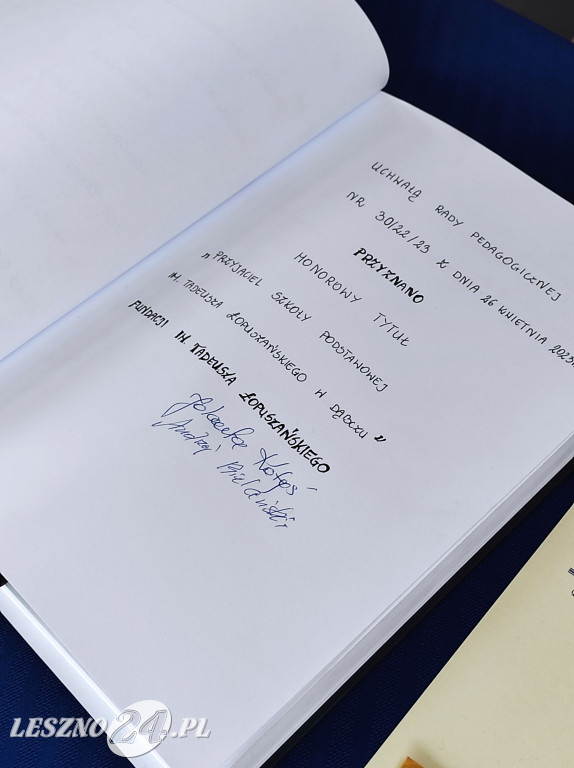 UCHWAŁĄ RADY PEDAGOGICZNEJ
NR 30/22/23 Z DNIA 26 KWIETNIA 2023r.
PRZYZNANO
HONOROWY TYTUŁ
„PRZYJACIEL SZKOŁY PODSTAWOWEJ
IM. TADEUSZA ŁOPUSZAŃSKIEGO W DĄBCZU”
FUNDACJI IM. TADEUSZA ŁOPUSZAŃSKIEGO
Andrzej Bielański
LESZNO24.PL